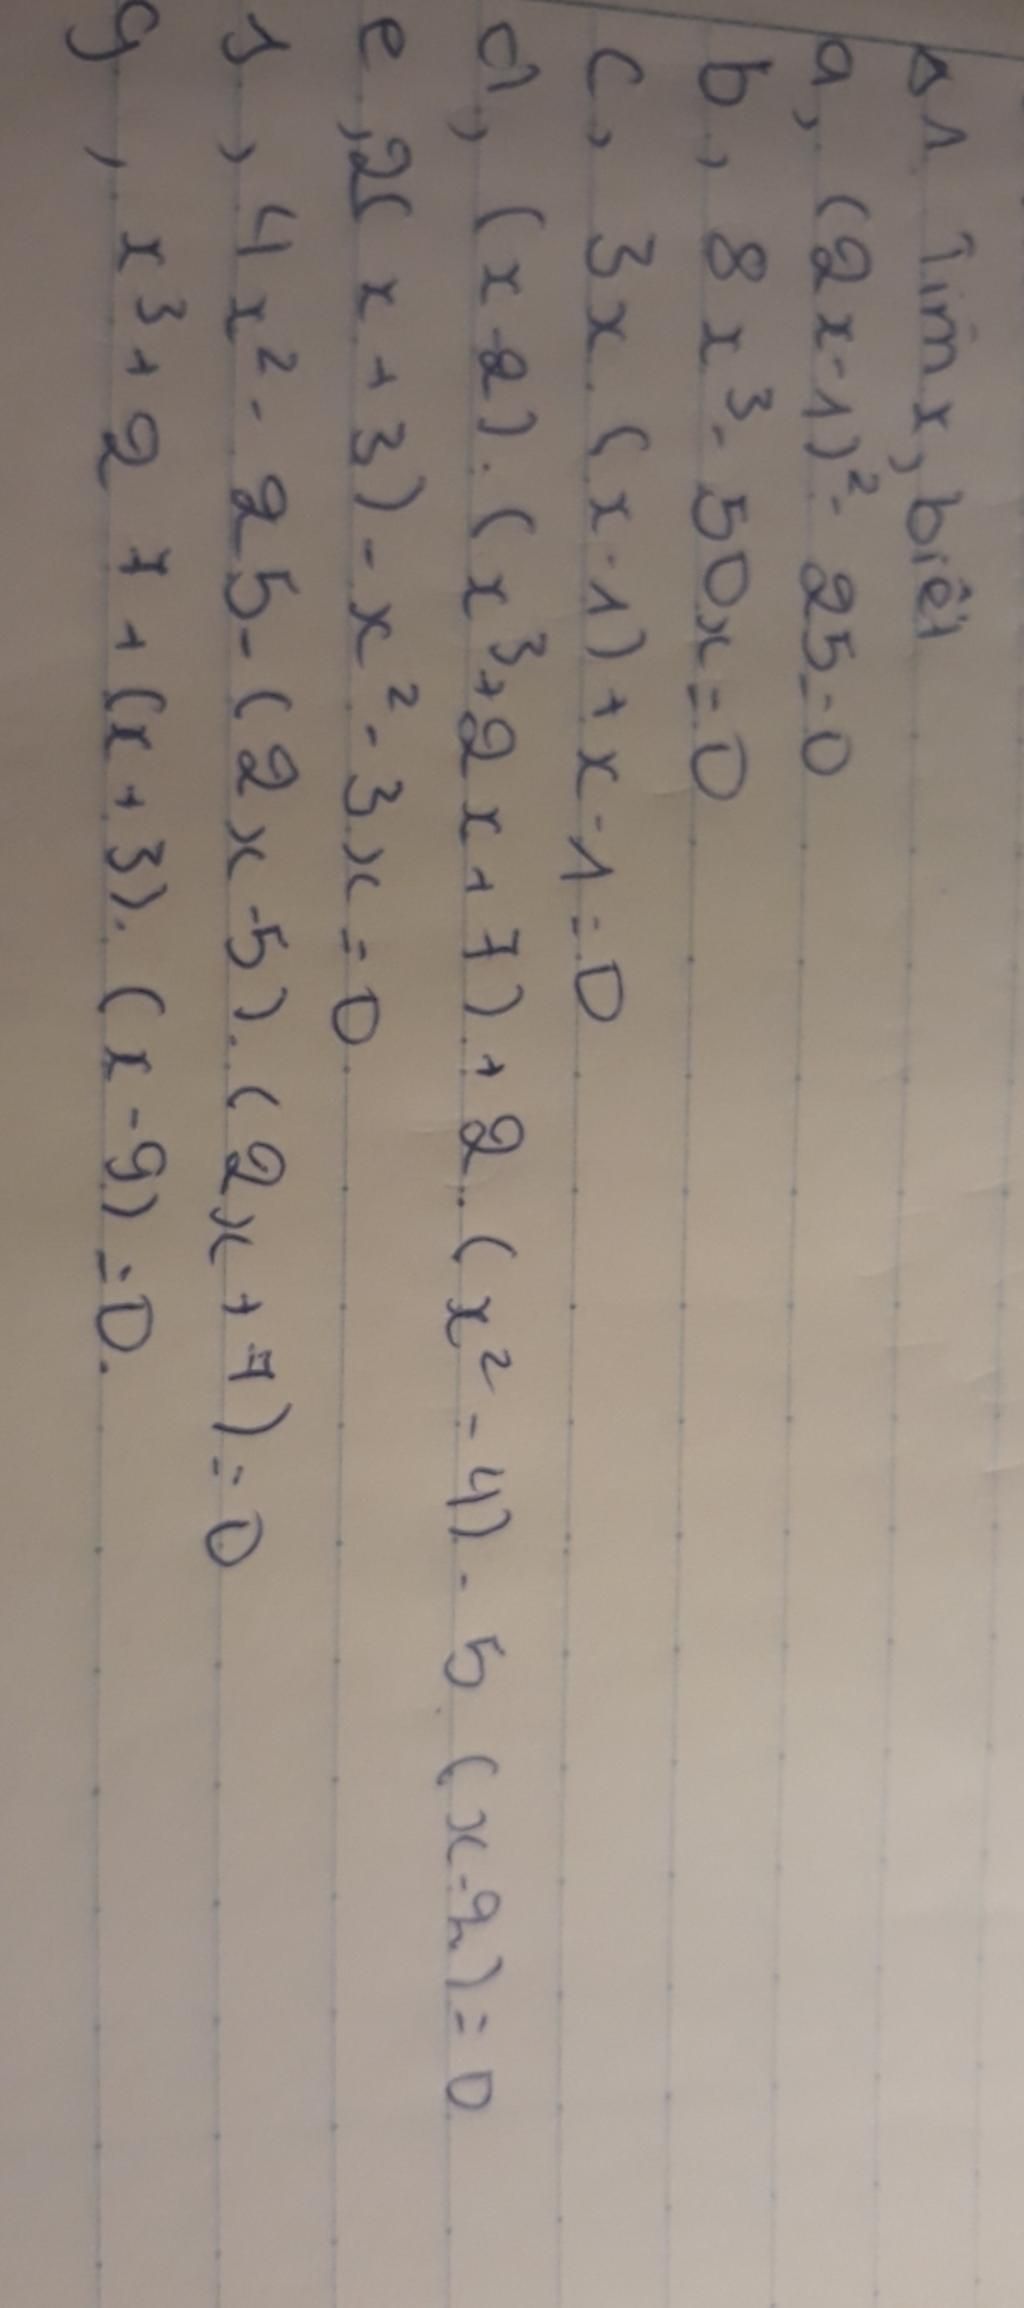 B1 Tìm x, biết
a, (2x-1)² - 25=0
b, 8x³ - 50x=0
c, 3x.(x-1)+x-1=0
d, (x-2).(x³+2x+7)+2.(x²-4)-5(x-2)=0
e, 2(x+3)-x²-3x=0
f, 4x²-25-(2x-5).(2x+7)=0
g, x³+27+(x+3).(x-9)=0.